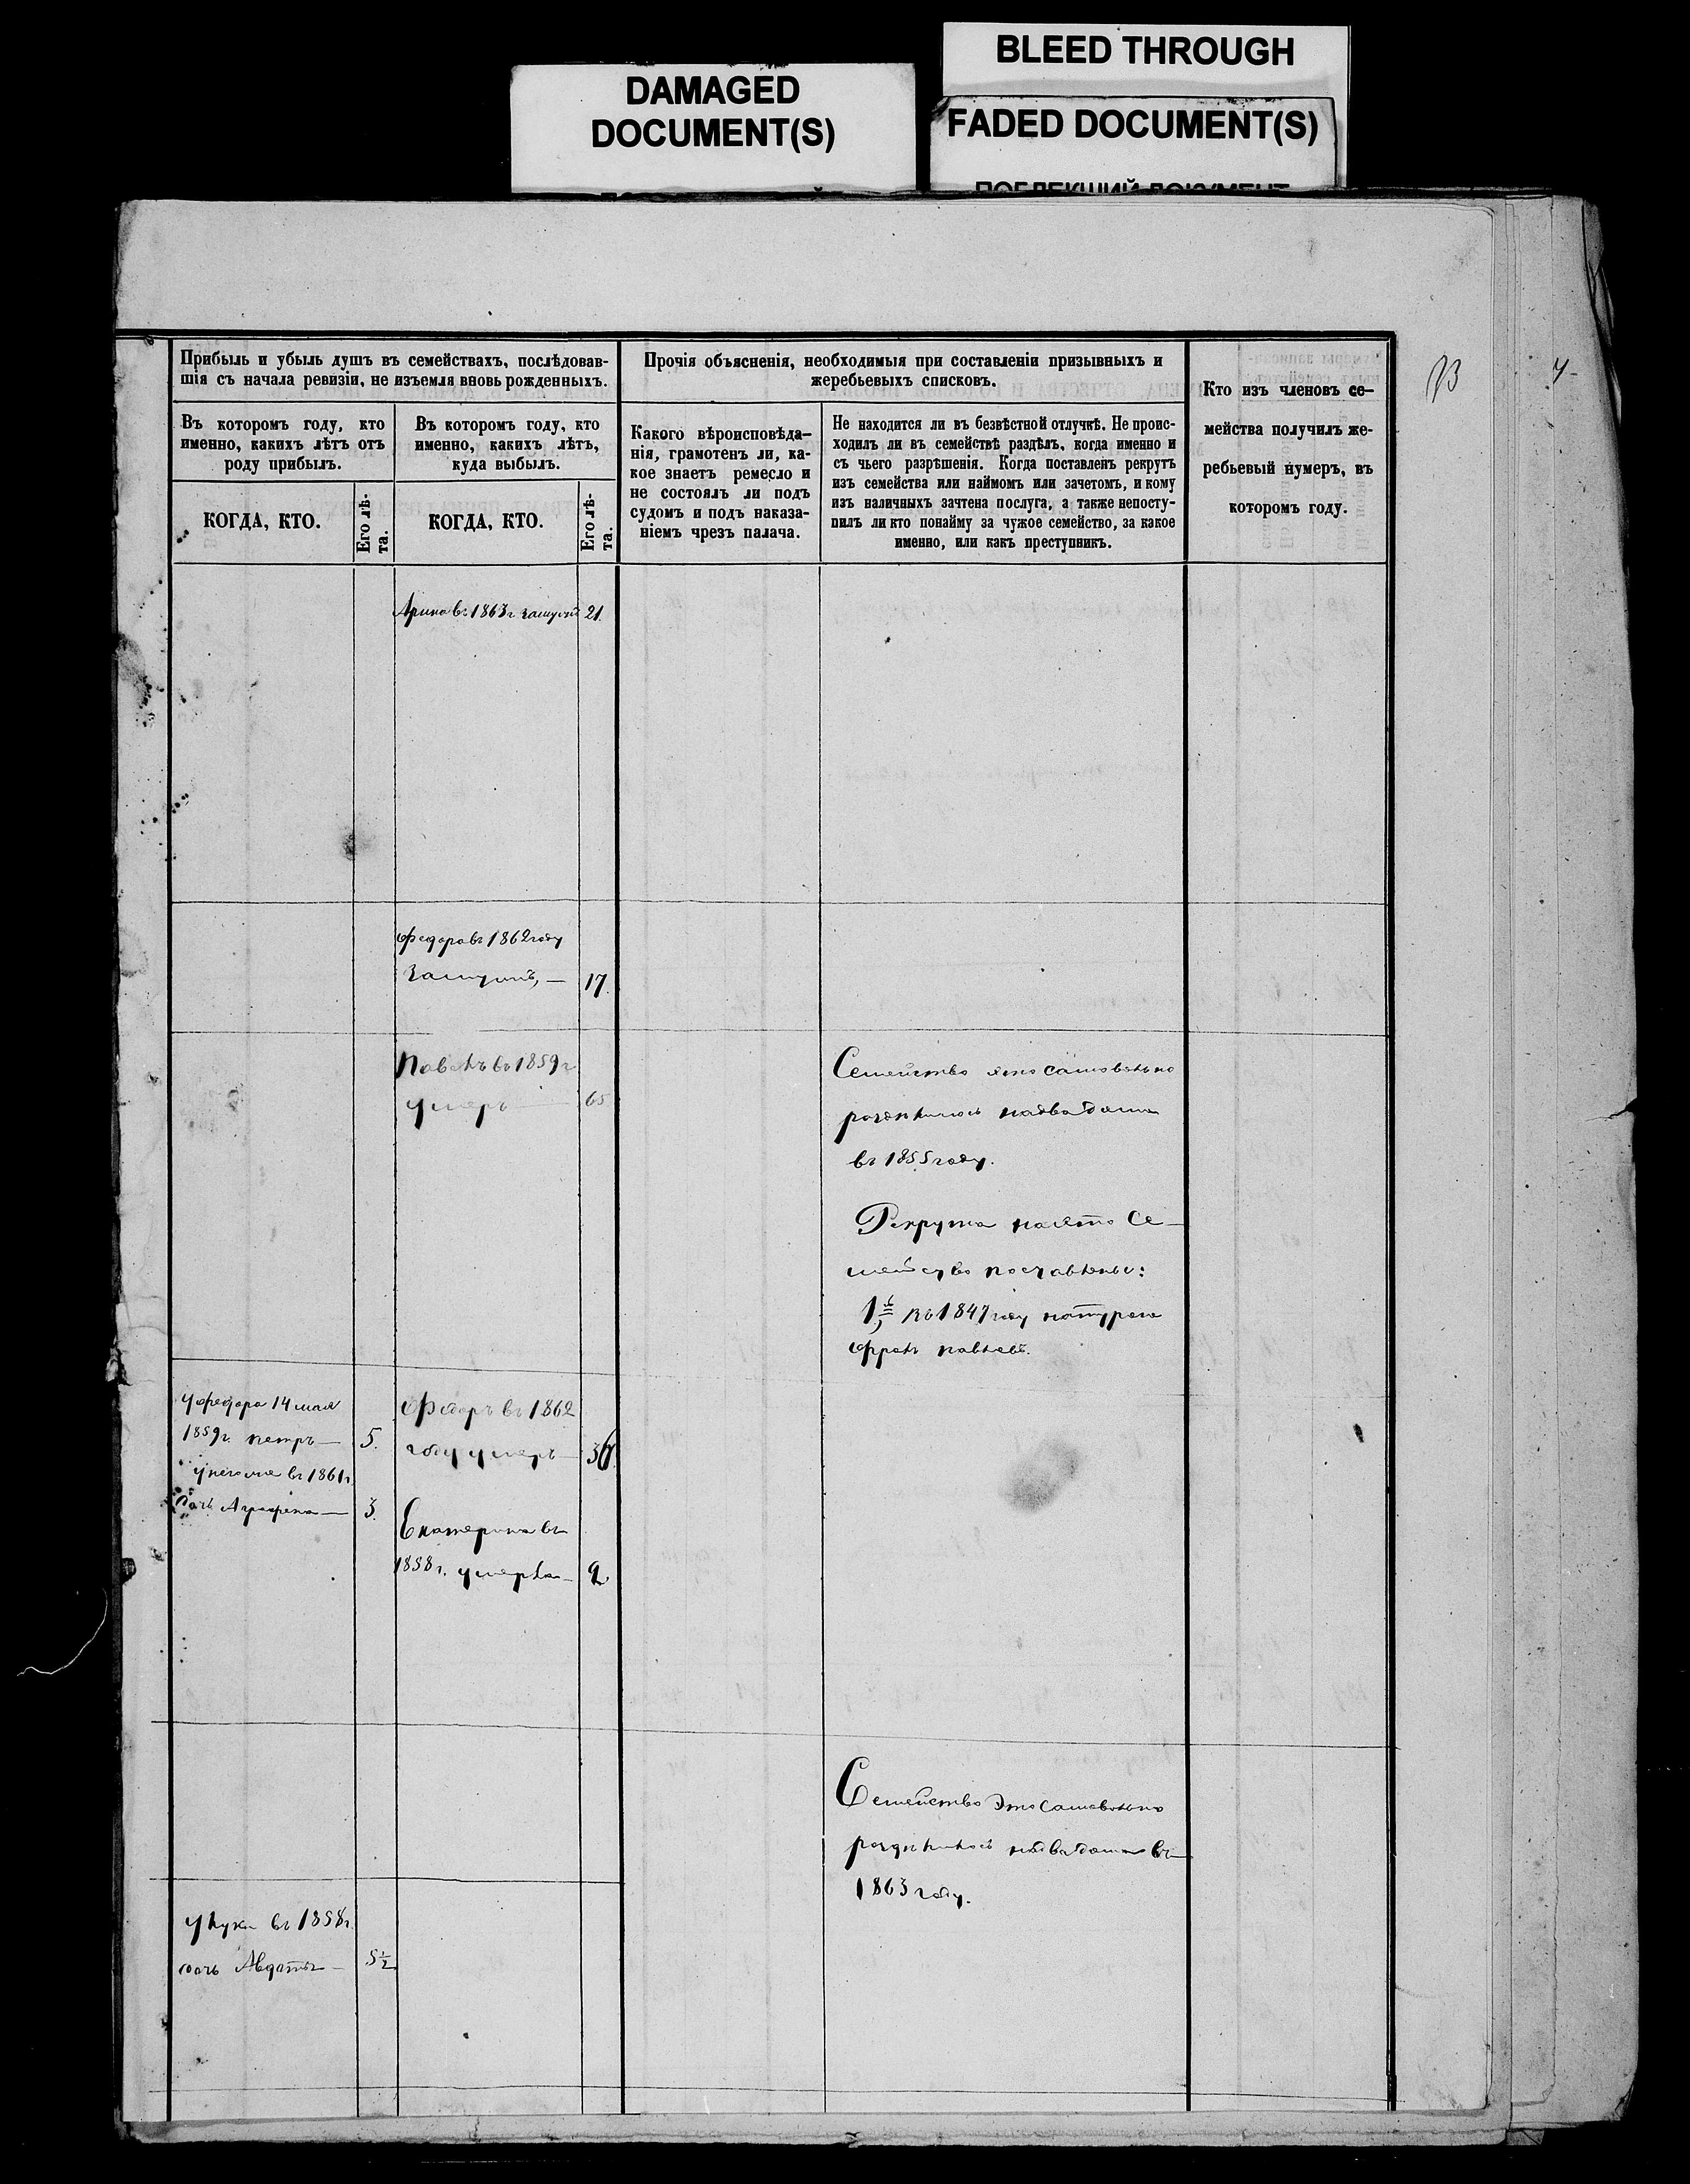 BLEED THROUGH
DAMAGED
DOCUMENT(S)
FADED DOCUMENT(S)
ПОБЛЕКШИЙ ДОКУМЕНТ
Прибыль и убыль душъ въ семействахъ, послѣдовав-
шія съ начала ревизіи, не изъемля вновь рожденныхъ.
Въ которомъ году, кто
именно, какихъ лѣтъ отъ
роду прибылъ.
КОГДА, КТО.
Его лѣ-
та.
Въ которомъ году, кто
именно, какихъ лѣтъ,
куда выбылъ.
КОГДА, КТО.
Его лѣ-
та.
Прочія объясненія, необходимыя при составленіи призывныхъ и
жеребьевыхъ списковъ.
Какого вѣроисповѣда-
нія, грамотенъ ли, ка-
кое знаетъ ремесло и
не состоялъ ли подъ
судомъ и подъ наказа-
ніемъ чрезъ палача.
Не находится ли въ безвѣстной отлучкѣ. Не проис-
ходилъ ли въ семействѣ раздѣлъ, когда именно и
съ чьего разрѣшенія. Когда поставленъ рекрутъ
изъ семейства или наймомъ или зачетомъ, и кому
изъ наличныхъ зачтена послуга, а также непосту-
пилъ ли кто понайму за чужое семейство, за какое
именно, или какъ преступникъ.
Кто изъ членовъ се-
мейства получилъ же-
ребьевый нумеръ, въ
которомъ году.
Арина въ 1863 г. замуж 21.
въ 1862 году
замужъ, — 17.
Павелъ въ 1859 г
умеръ — 65
Семейство это самовольно
раздѣлилось на два дома
въ 1855 году.
Рекрута на это Се-
мейство поставлены:
1, въ 1847 году натурою
Павловъ.
у Федора 14 мая
1859 г. Петръ — 5.
у него же въ 1861 г
дочь Аграфена — 3.
Федоръ въ 1862
году умеръ — 36.
Екатерина въ
1858 г. умерла — 9
Семейство это самовольно
раздѣлилось на два дома въ
1863 году.
у Луки въ 1858 г.
дочь Авдотья — 5½